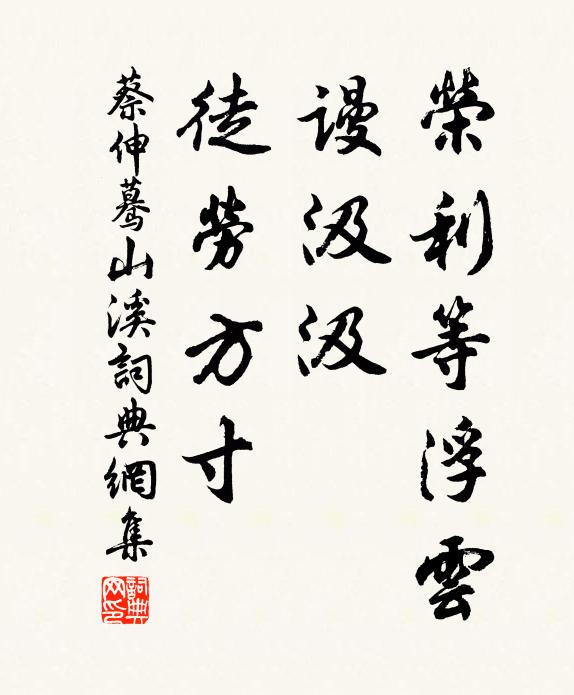 榮利等浮雲
謾汲汲
徒勞方寸
蔡伸蓦山溪詞典網集
詞典網印